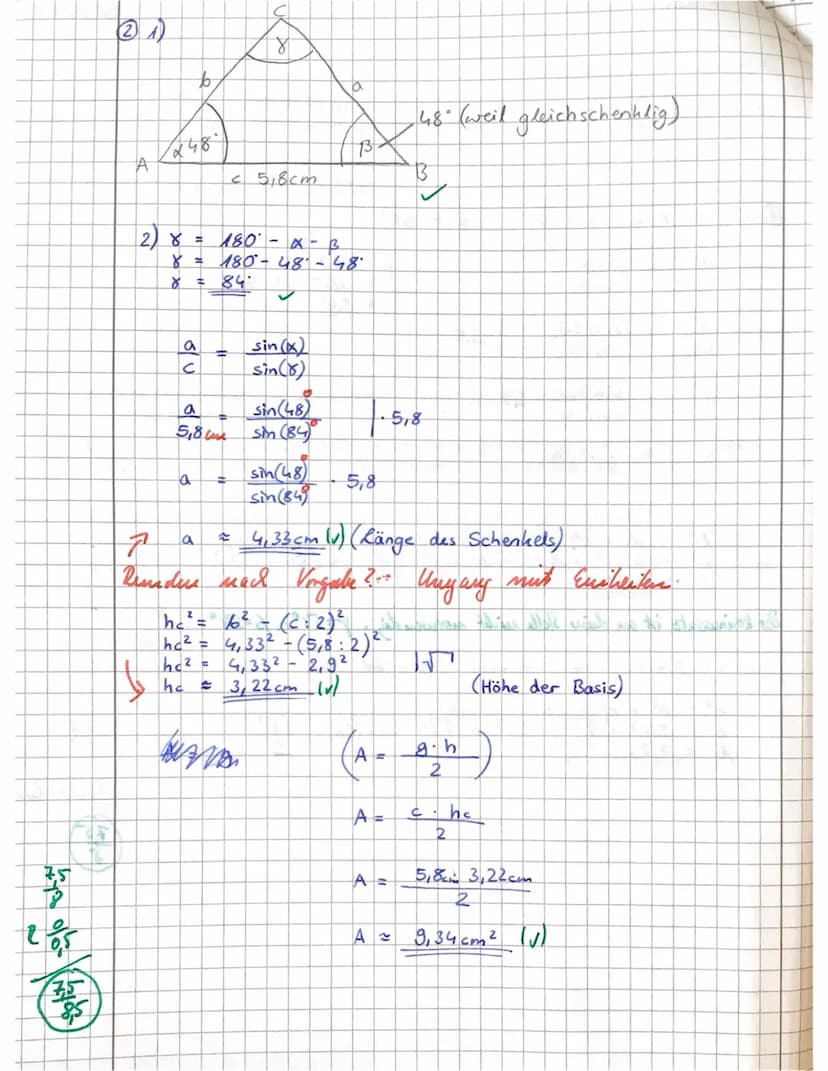 ② 1)
C
γ
b
a
48° (weil gleichschenklig)
α 48°
β
A
B
c 5,8cm
✓
2) γ = 180° - α - β
γ = 180° - 48° - 48°
γ = 84°
✓
a/c = sin(α)/sin(γ)
a/5,8cm = sin(48)°/sin(84)° | · 5,8
a = sin(48)°/sin(84)° · 5,8
a ≈ 4,33cm (✓) (Länge des Schenkels)
Runden nach Vorgabe? Umgang mit Einheiten.
hc² = b² - (c:2)²
hc² = 4,33² - (5,8:2)²
hc² = 4,33² - 2,9² |√
hc ≈ 3,22cm (✓) (Höhe der Basis)
(A = g·h/2)
A = c · hc/2
A = 5,8cm · 3,22cm/2
A ≈ 9,34cm² (✓)
7,5/8
R 0/0,5
7,5/8,5